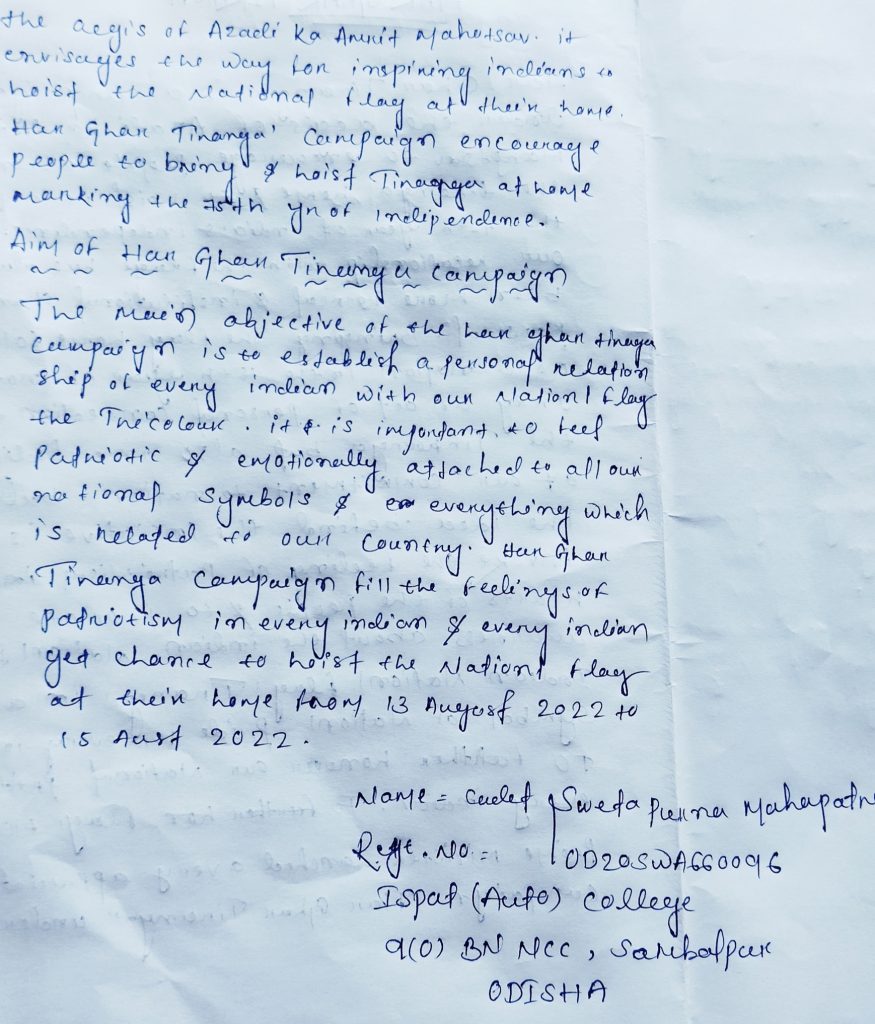 the aegis of Azadi Ka Amrit Mahotsav. it
envisages the way for inspiring indians to
hoist the National flag at their home.
Har Ghar Tiranga' Campaign encourage
people to bring & hoist Tiragga at home
marking the 75th yr of Independence.
Aim of Har Ghar Tiranga campaign
The main objective of the har ghar tiraga
campaign is to establish a personal relation
ship of every indian with our Nationl flag
the Tricolour. it is important to feel
Patriotic & emotionally attached to all our
national Symbols & everything which
is related to our country. Har Ghar
Tiranga Campaign fill the feelings of
patriotism in every indian & every indian
get chance to hoist the Nationl flag
at their home from 13 August 2022 to
15 Aust 2022.
Name = Cadet Sweta Purna Mahapatr
Regt. No. = OD20SWA660096
Ispat (Auto) College
9(O) BN NCC, Sambalpur
ODISHA